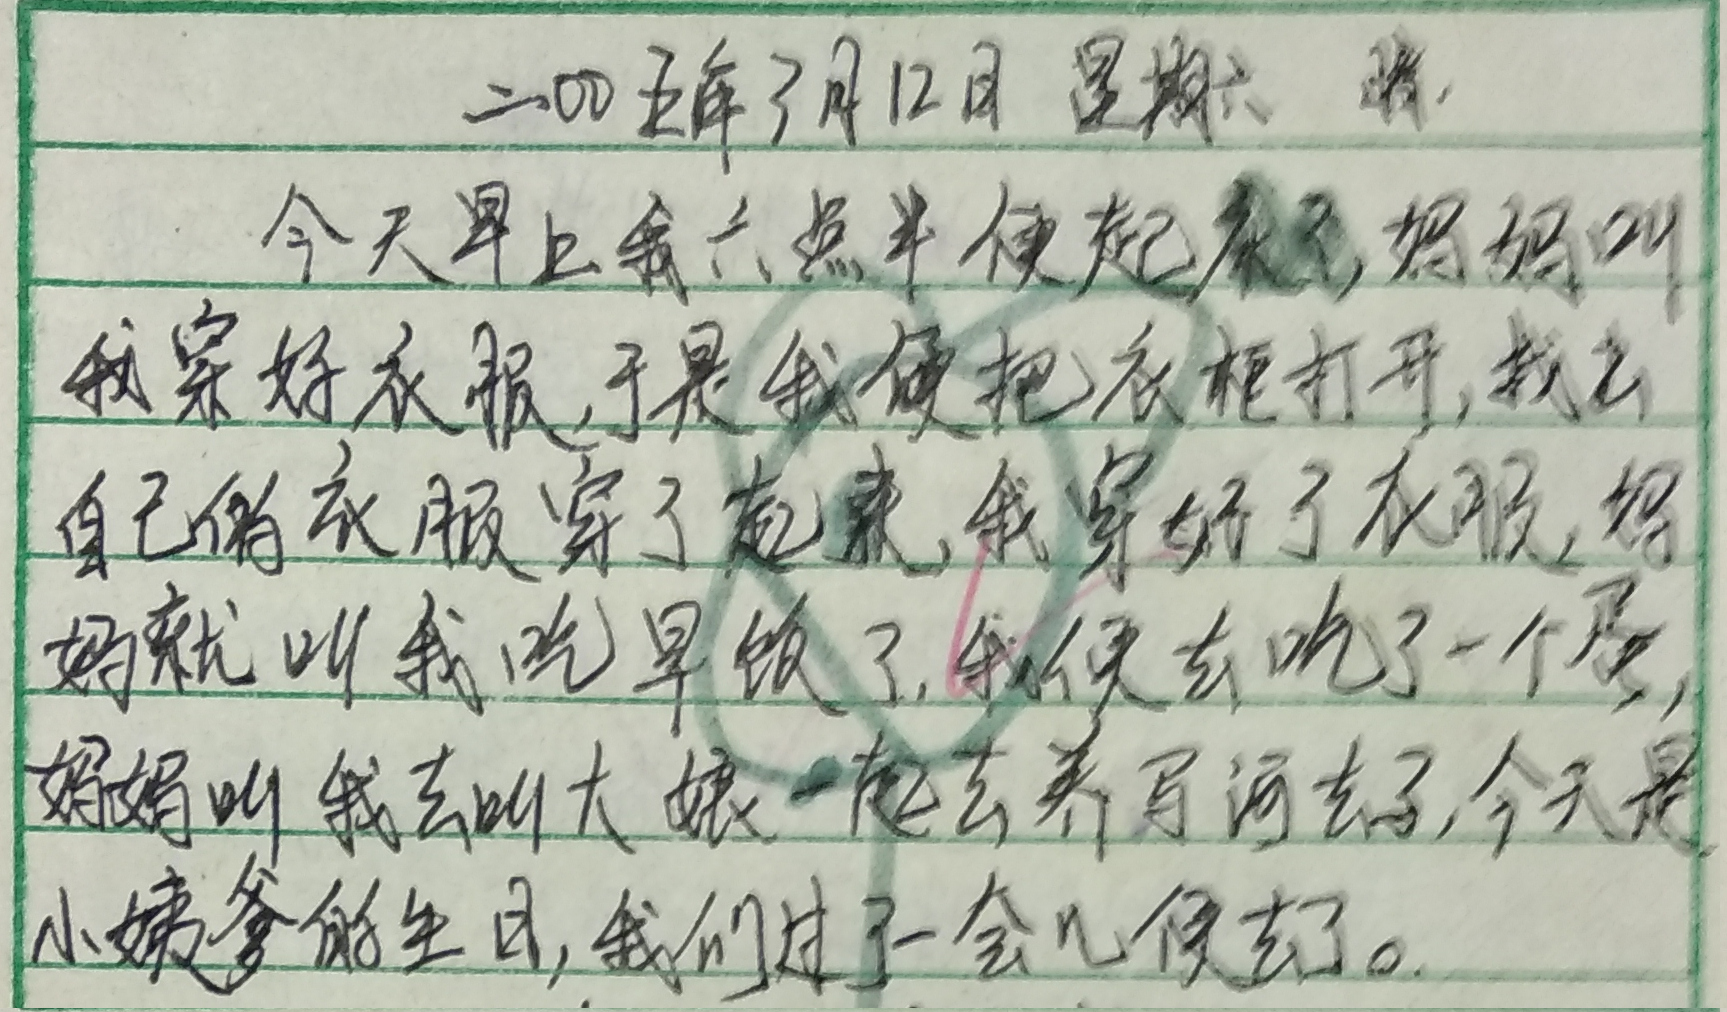 二00五年3月12日 星期六 晴.
今天早上我六点半便起床了,妈妈叫
我穿好衣服,于是我便把衣柜打开,我去
自己的衣服穿了起来,我穿好了衣服,妈
妈就叫我吃早饭了,我便去吃了一个蛋,
妈妈叫我去叫大娘一起去养马河去了,今天是
小姨爹的生日,我们过了一会儿便去了。